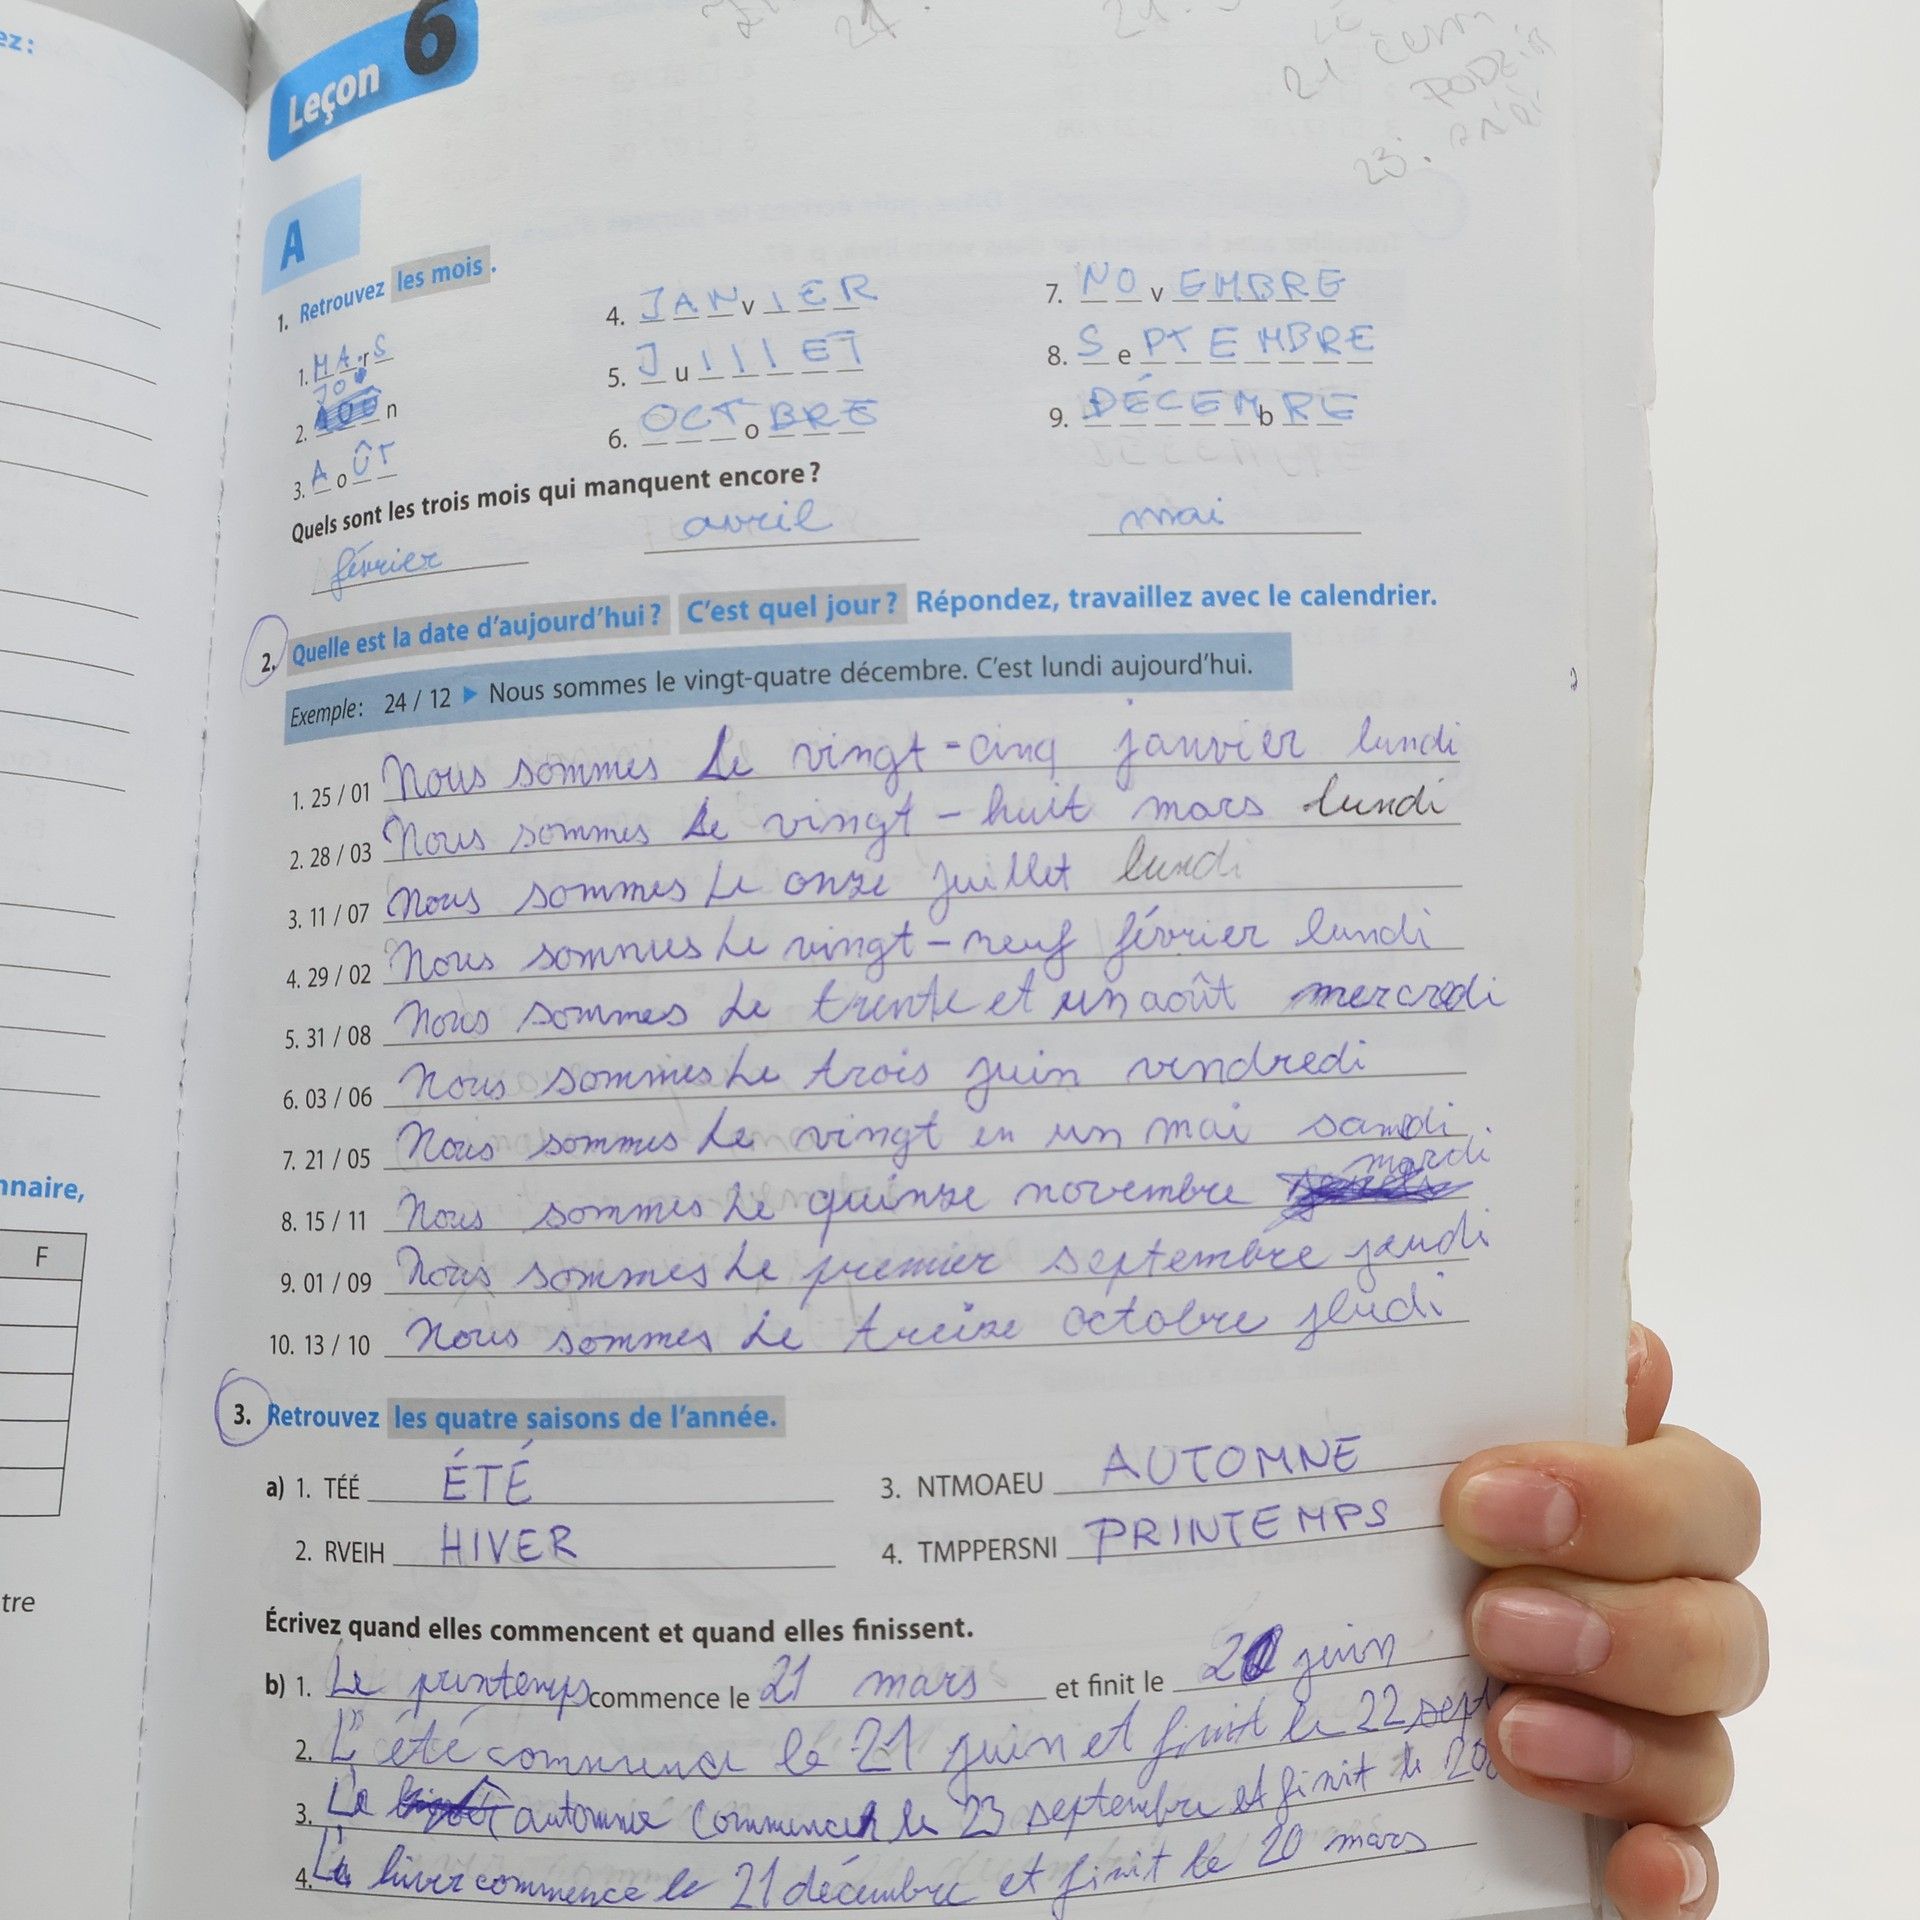 ez:
Leçon 6
21
21 čern
podzim
23.
A
1. Retrouvez les mois.
1. MArS
JU
2. n
3. AoÛT
4. JANvIER
5. JuIllET
6. OCToBRE
7. NOvEMBRE
8. SePTEMBRE
9. DÉCEMbRE
Quels sont les trois mois qui manquent encore?
février avril mai
2. Quelle est la date d'aujourd'hui? C'est quel jour? Répondez, travaillez avec le calendrier.
Exemple: 24 / 12 ► Nous sommes le vingt-quatre décembre. C'est lundi aujourd'hui.
1. 25 / 01 Nous sommes Le vingt-cinq janvier lundi
2. 28 / 03 Nous sommes Le vingt-huit mars lundi
3. 11 / 07 Nous sommes Le onze juillet lundi
4. 29 / 02 Nous sommes Le vingt-neuf février lundi
5. 31 / 08 Nous sommes Le trente et un août mercredi
6. 03 / 06 Nous sommes Le trois juin vendredi
7. 21 / 05 Nous sommes Le vingt en un mai samdi
8. 15 / 11 Nous sommes Le quinze novembre mardi
9. 01 / 09 Nous sommes Le premier septembre jeudi
10. 13 / 10 Nous sommes Le treize octobre jeudi
nnaire,
F
tre
3. Retrouvez les quatre saisons de l'année.
a) 1. TÉÉ ÉTÉ 3. NTMOAEU AUTOMNE
2. RVEIH HIVER 4. TMPPERSNI PRINTEMPS
Écrivez quand elles commencent et quand elles finissent.
b) 1. Le printemps commence le 21 mars et finit le 20 juin
2. L'été commence le 21 juin et finit le 22 sept
3. L'automne commence le 23 septembre et finit le 20
4. L'hiver commence le 21 décembre et finit le 20 mars